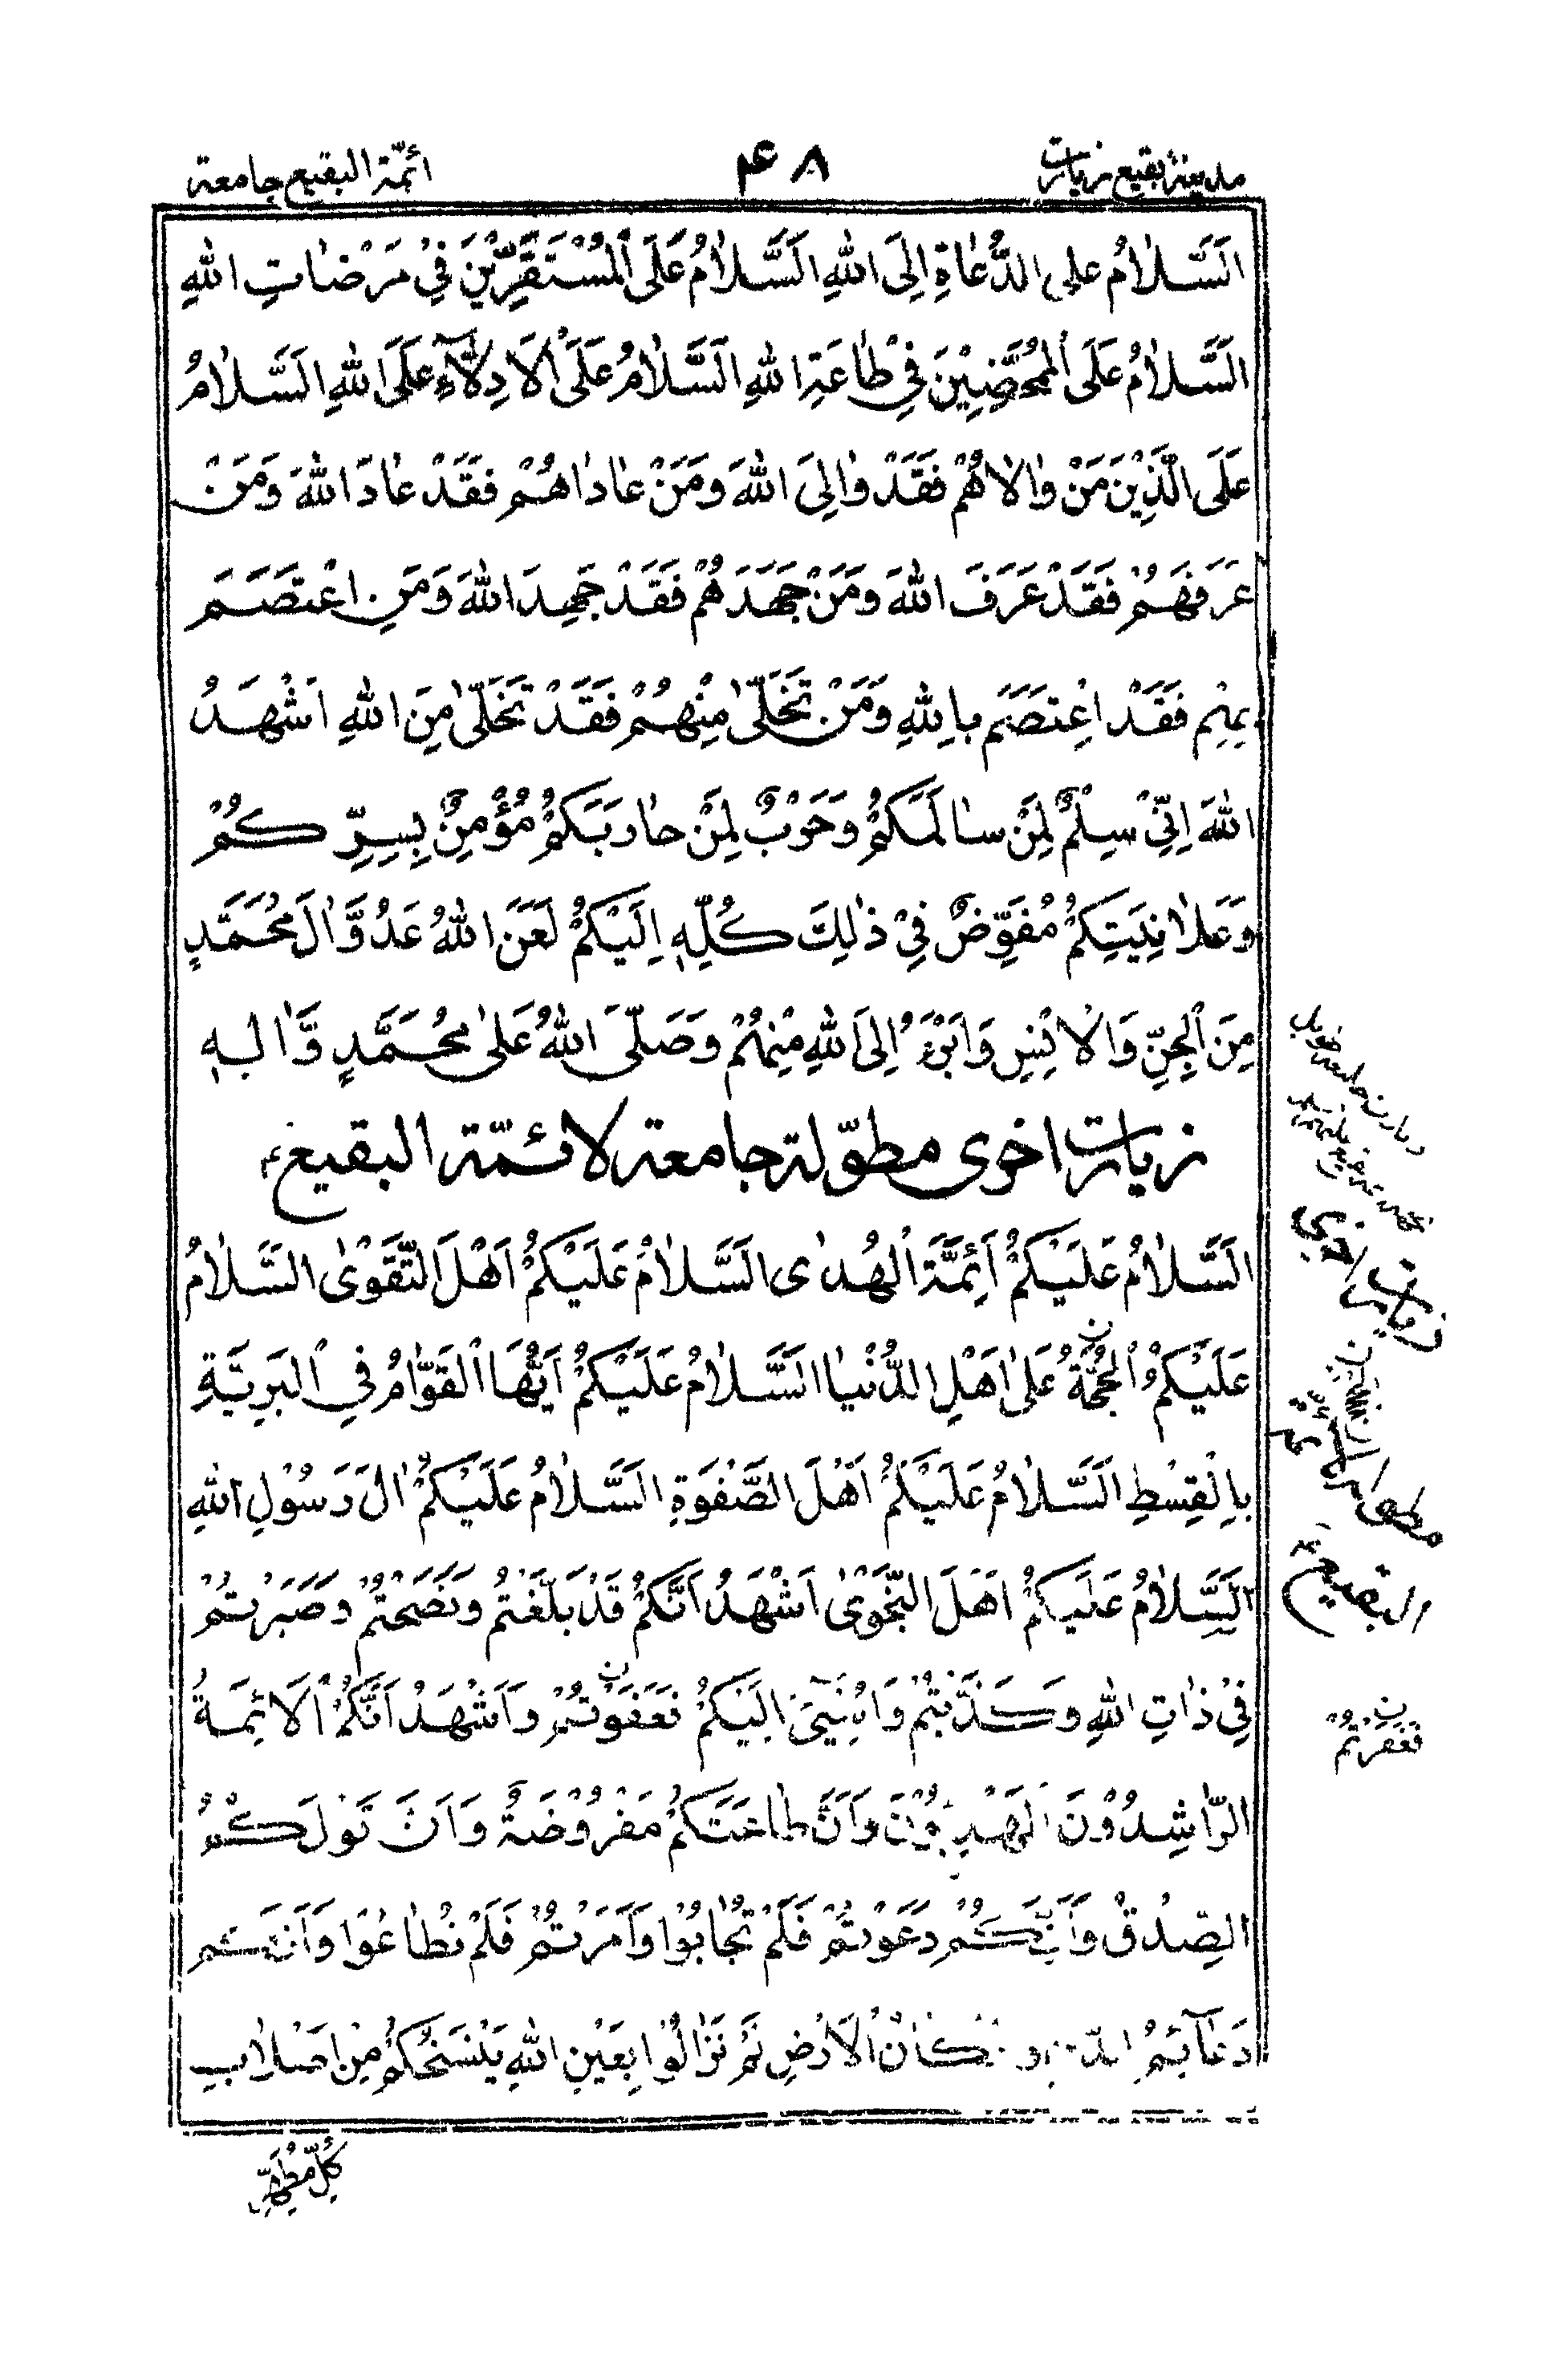 مدینۂ بقیع زیارت
۴۸
أئمّة البقيع جامعة
اَلسَّلاٰمُ علی الدُّعٰاةِ اِلَی اللّٰهِ اَلسَّلاٰمُ عَلَی الْمُسْتَقِرِّيْنَ فِيْ مَرْضٰاتِ اللّٰهِ
اَلسَّلاٰمُ عَلَی الْمُمَحَّضِيْنَ فِيْ طٰاعَةِ اللّٰهِ اَلسَّلاٰمُ عَلَی الْاَدِلّٰآءِ عَلَی اللّٰهِ اَلسَّلاٰمُ
عَلَی الَّذِيْنَ مَنْ وٰالاٰهُمْ فَقَدْ وٰالَی اللّٰهَ وَمَنْ عٰادٰاهُمْ فَقَدْ عٰادَ اللّٰهَ وَمَنْ
عَرَفَهُمْ فَقَدْ عَرَفَ اللّٰهَ وَمَنْ جَهَدَهُمْ فَقَدْ جَهِدَ اللّٰهَ وَمَنِ اعْتَصَمَ
بِهِمْ فَقَدْ اعْتَصَمَ بِاللّٰهِ وَمَنْ تَخَلّٰی مِنْهُمْ فَقَدْ تَخَلّٰی مِنَ اللّٰهِ اَشْهَدُ
اللّٰهَ اِنِّيْ سِلْمٌ لِمَنْ سٰالَمَكُمْ وَحَرْبٌ لِمَنْ حٰارَبَكُمْ مُؤْمِنٌ بِسِرِّكُمْ
وَعَلاٰنِيَتِكُمْ مُفَوِّضٌ فِيْ ذٰلِكَ كُلِّهٖ اِلَيْكُمْ لَعَنَ اللّٰهُ عَدُوَّ اٰلَ مُحَمَّدٍ
مِنَ الْجِنِّ وَالْاِنْسِ وَاَبْرَءُ اِلَی اللّٰهِ مِنْهُمْ وَصَلَّی اللّٰهُ عَلٰی مُحَمَّدٍ وَّاٰلِهٖ
زیارت اخری مطوّلة جامعة لائمّة البقيع ؑ
اَلسَّلاٰمُ عَلَيْكُمْ اَئِمَّةَ الْهُدٰی اَلسَّلاٰمُ عَلَيْكُمْ اَهْلَ التَّقْوٰی اَلسَّلاٰمُ
عَلَيْكُمُ الْحُجَّةُ عَلٰی اَهْلِ الدُّنْيٰا اَلسَّلاٰمُ عَلَيْكُمْ اَيُّهَا الْقَوّٰامُ فِي الْبَرِيَّةِ
بِالْقِسْطِ اَلسَّلاٰمُ عَلَيْكُمْ اَهْلَ الصَّفْوَةِ اَلسَّلاٰمُ عَلَيْكُمْ اٰلَ رَسُوْلِ اللّٰهِ
اَلسَّلاٰمُ عَلَيْكُمْ اَهْلَ النَّجْوٰی اَشْهَدُ اَنَّكُمْ قَدْ بَلَّغْتُمْ وَنَصَحْتُمْ وَصَبَرْتُمْ
فِيْ ذٰاتِ اللّٰهِ وَكُذِّبْتُمْ وَاُسِيْئَ اِلَيْكُمْ فَعَفَوْتُمْ وَاَشْهَدُ اَنَّكُمُ الْاَئِمَةُ
الرّٰاشِدُوْنَ الْمَهْدِيُّوْنَ وَاَنَّ طٰاعَتَكُمْ مَفْرُوْضَةٌ وَاَنَّ قَوْلَكُمُ
الصِّدْقُ وَاَنَّكُمْ دَعَوْتُمْ فَلَمْ تُجٰابُوْا وَاَمَرْتُمْ فَلَمْ تُطٰاعُوْا وَاَنَّكُمْ
دَعٰآئِمُ الْاَرْضِ لَمْ تَزٰالُوْا بِعَيْنِ اللّٰهِ يَنْسَخُكُمْ مِنْ اَصْلاٰبِ
كُلِّ مُطَهَّرٍ
زیارت اخری
مطولة
البقيع
ن
فَغَفَرْتُمْ